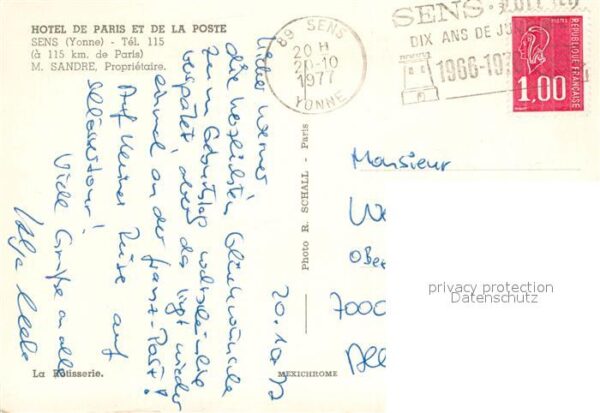 HOTEL DE PARIS ET DE LA POSTE
SENS (Yonne) - Tél. 115
(à 115 km. de Paris)
M. SANDRE, Propriétaire.
89 SENS
20 H
20-10
1977
YONNE
SENS
DIX ANS DE JU
1966-197
POSTES
REPUBLIQUE FRANÇAISE
1,00
20.10.77
Lieber Werner
die herzlichsten Glückwünsche
zum Geburtstag
verspätet, aber das liegt wieder
einmal an der franz. Post!
Auf kleiner Reise auf
Viele Grüße an alle
Photo R. SCHALL - Paris
Monsieur
We
Obe
7000
All
privacy protection
Datenschutz
La Rôtisserie.
MEXICHROME